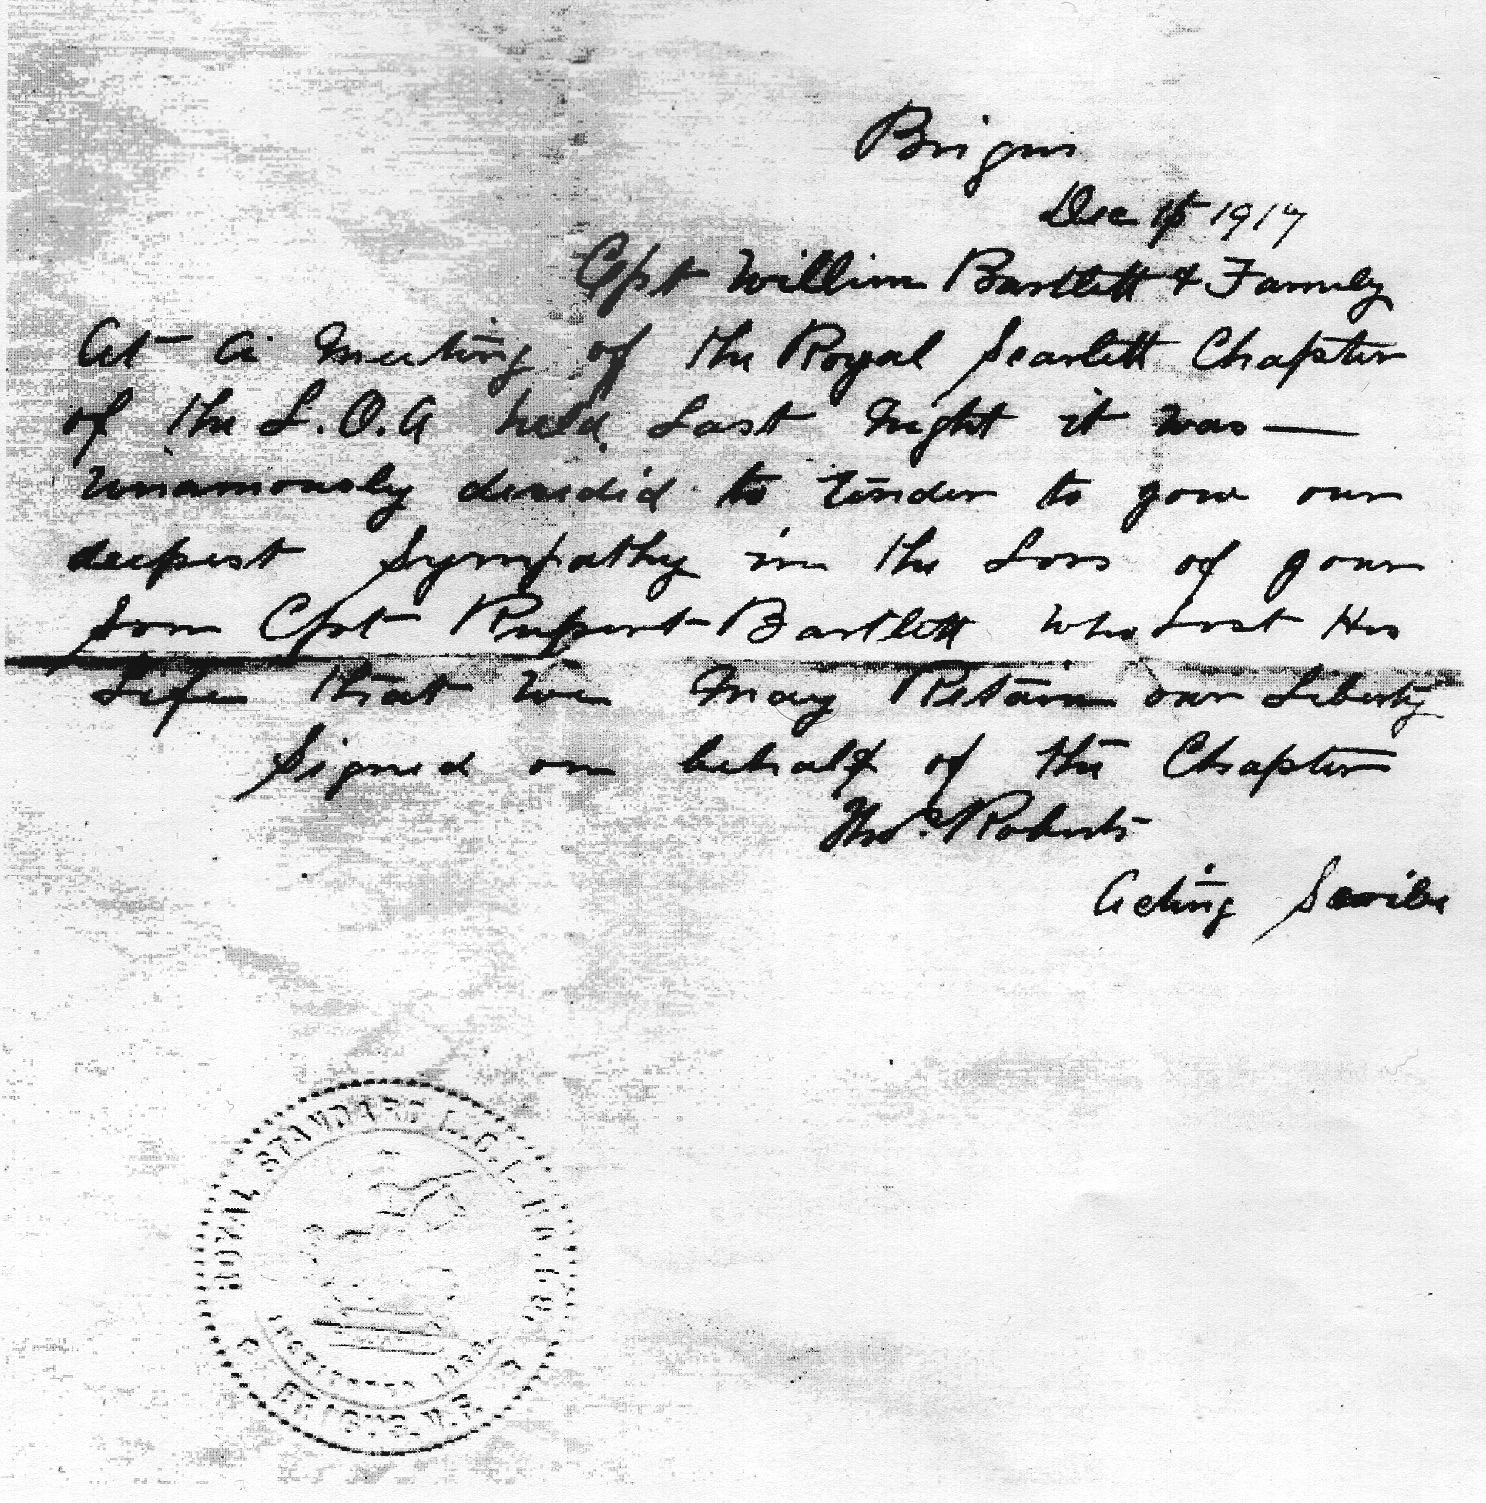 Brigus
Dec 15 1917
Cpt William Bartlett & Family
At a Meeting of the Royal Scarlett Chapter
of the L.O.A held Last Night it was —
Unamously decided to Tender to your our
deepest Sympathy in the Loss of your
Son Cpt Rupert Bartlett who Lost His
Life that we May Retain our Liberty
Signed on behalf of the Chapter
Thos. Roberts
Acting Scribe
ROYAL STANDARD L.O.L.
INSTITUTED
BRIGUS. N.F.